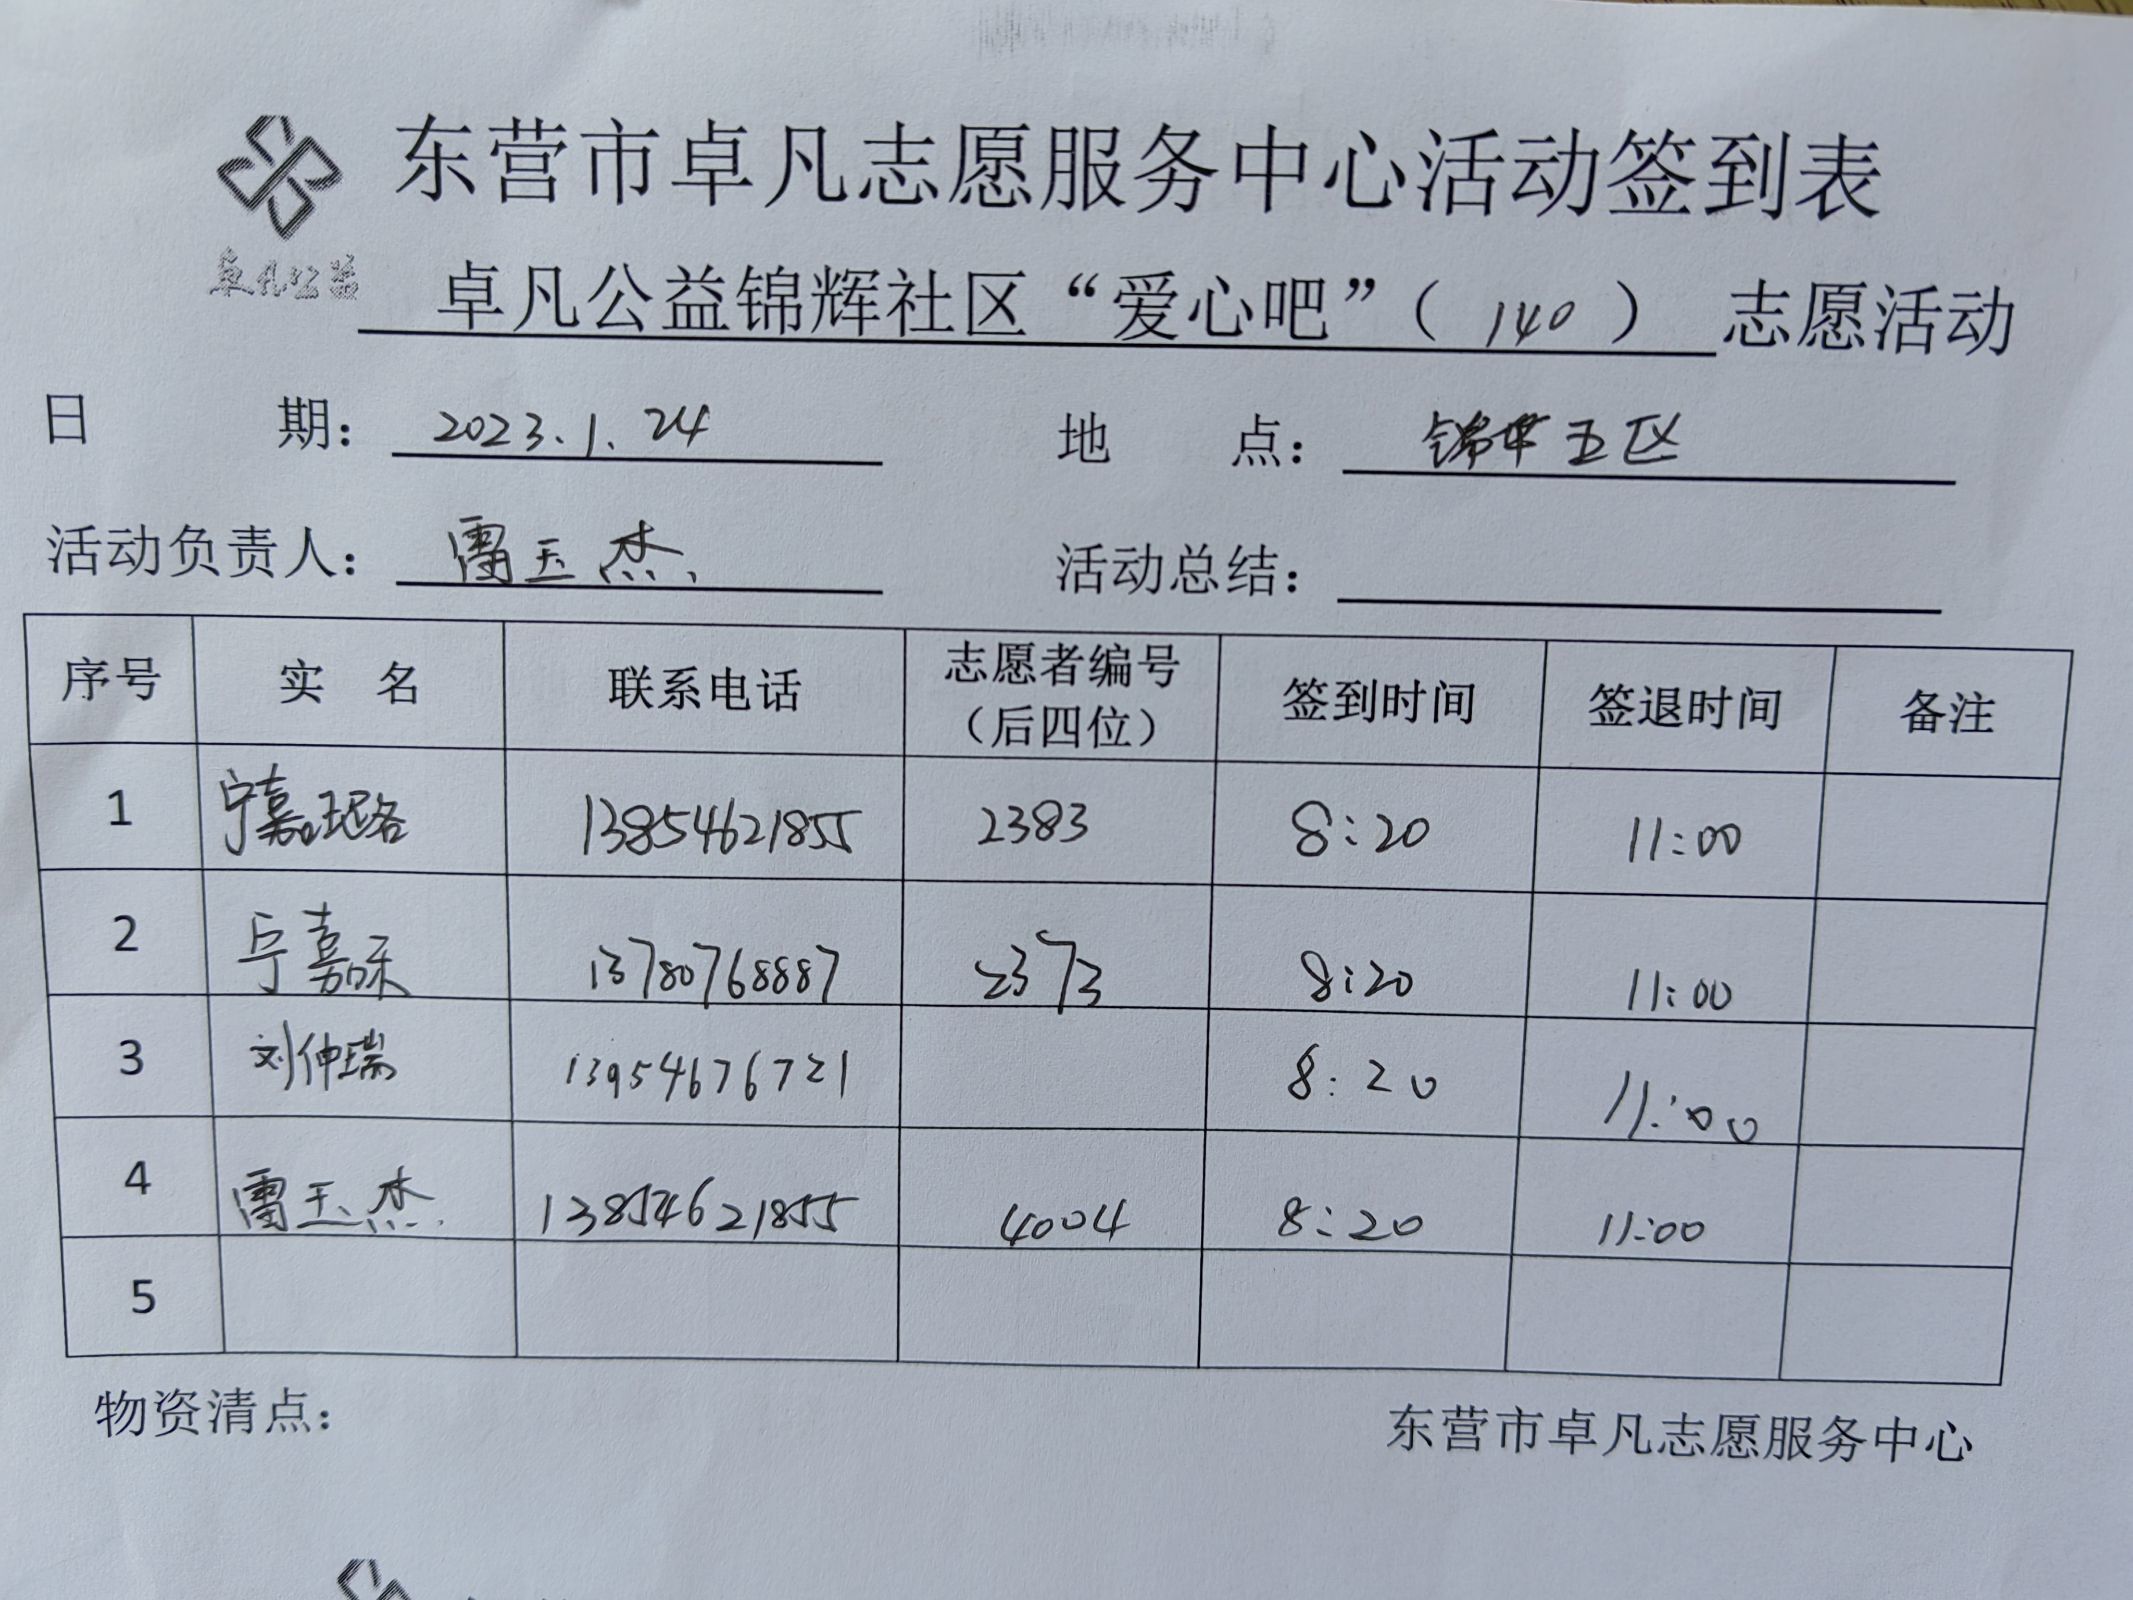 东营市卓凡志愿服务中心活动签到表
卓凡公益
卓凡公益锦辉社区“爱心吧”（ 140 ）志愿活动
日 期： 2023.1.24 地 点： 锦华五区
活动负责人： 雷玉杰 活动总结：
序号 实 名 联系电话 志愿者编号（后四位） 签到时间 签退时间 备注
1 宁嘉珺 13854621855 2383 8:20 11:00
2 宁嘉 13780768887 2373 8:20 11:00
3 刘仲瑞 13954676721 8:20 11:00
4 雷玉杰 13854621855 4004 8:20 11:00
5
物资清点： 东营市卓凡志愿服务中心